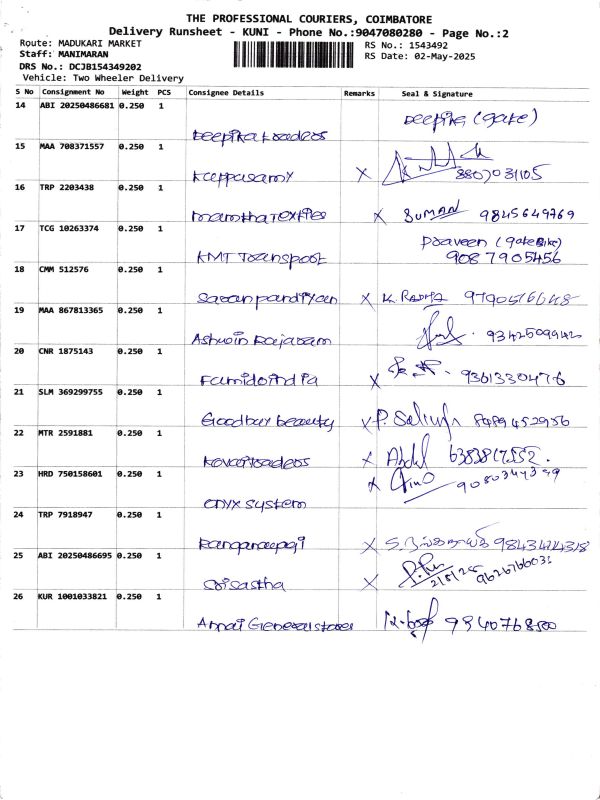 THE PROFESSIONAL COURIERS, COIMBATORE
Delivery Runsheet - KUNI - Phone No.:9047080280 - Page No.:2
Route: MADUKARI MARKET RS No.: 1543492
Staff: MANIMARAN RS Date: 02-May-2025
DRS No.: DCJB154349202
Vehicle: Two Wheeler Delivery
S No Consignment No Weight PCS Consignee Details Remarks Seal & Signature
14 ABI 20250486681 0.250 1
Deepika traders Deepika (gate)
15 MAA 708371557 0.250 1
Kappasamy X 8807031105
16 TRP 2203438 0.250 1
mamtha Textiles X SUMAN 9845649769
17 TCG 10263374 0.250 1
KMT Transport Praveen (gate Bike)
9087905456
18 CMM 512576 0.250 1
Saran pandiyan X K. RADHA
19 MAA 867813365 0.250 1
Ashwin Rajaram
20 CNR 1875143 0.250 1
Famido India X 9361330476
21 SLM 369299755 0.250 1
Goodbuy beauty X P.
22 MTR 2591881 0.250 1
X Abdul
23 HRD 750158601 0.250 1 X
onyx system
24 TRP 7918947 0.250 1
X
25 ABI 20250486695 0.250 1
Srisastha X 2/5/25
26 KUR 1001033821 0.250 1
Annai General stores